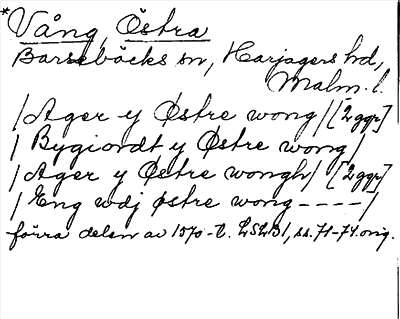 *Vång, Östra
Barsebäcks sn, Harjagers hd,
Malm. l.
/Ager y Østre wong/ [2 ggr]
/Bygiordt y Østre wong/
/Ager y Østre wongh/ [2 ggr]
/Eng wdj østre wong ----/
förra delen av 1570-t. LSLB1, ss. 71-74. orig.